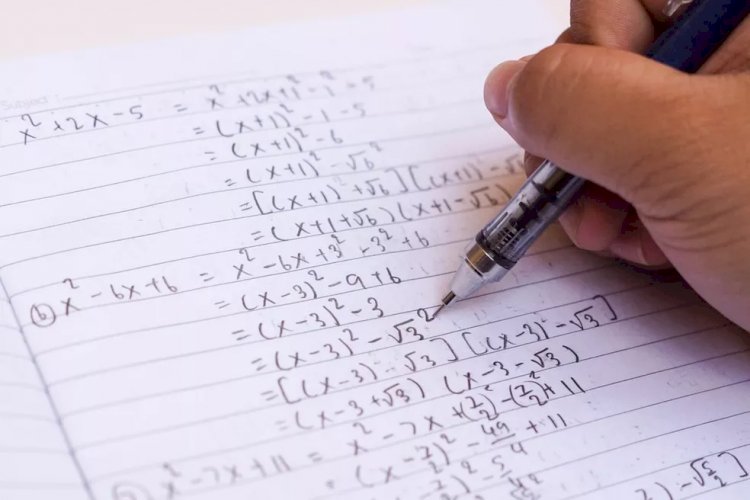 Subject :
x² + 2x - 5 = x² + 2x + 1² - 1² - 5
= (x+1)² - 1 - 5
= (x+1)² - 6
= (x+1)² - √6²
= [(x+1) + √6] [(x+1) - √6
= (x+1+√6) (x+1-√6)
(b) x² - 6x + 6 = x² - 6x + 3² - 3² + 6
= (x-3)² - 9 + 6
= (x-3)² - 3
= (x-3)² - √3²
= [(x-3) - √3] [(x-3) - √3]
= (x-3+√3) (x-3-√3)
x² - 7x + 11 = x² - 7x + (7/2)² - (7/2)² + 11
= (x-7/2)² - 49/4 + 11
² - 5/4
- √5/2)]